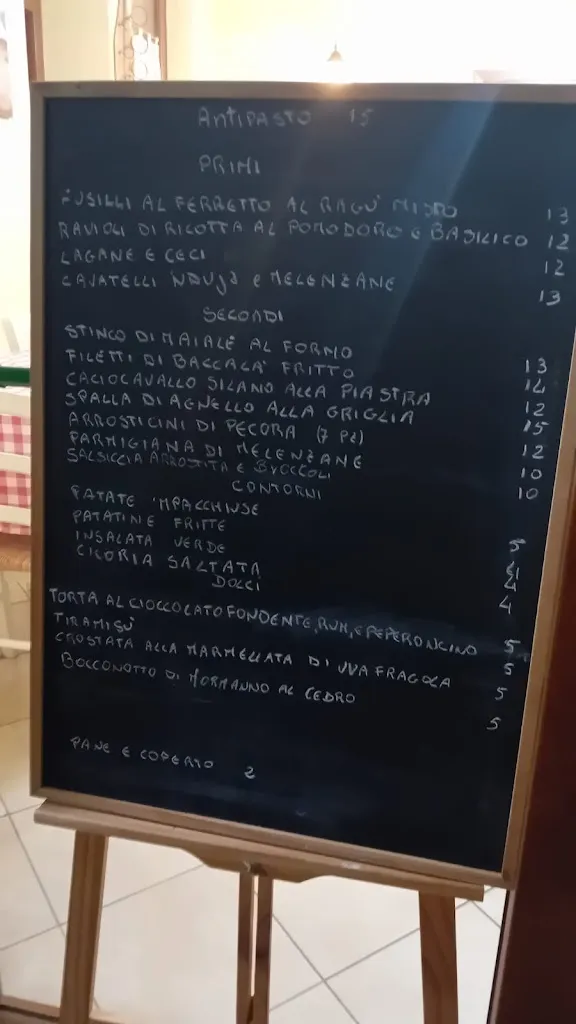 ANTIPASTO 15
PRIMI
FUSILLI AL FERRETTO AL RAGU' MISTO 13
RAVIOLI DI RICOTTA AL POMODORO E BASILICO 12
LAGANE E CECI 12
CAVATELLI 'NDUJA E MELENZANE 13
SECONDI
STINCO DI MAIALE AL FORNO 13
FILETTI DI BACCALA' FRITTO 14
CACIOCAVALLO SILANO ALLA PIASTRA 12
SPALLA DI AGNELLO ALLA GRIGLIA 15
ARROSTICINI DI PECORA (7 PZ) 12
PARMIGIANA DI MELENZANE 10
SALSICCIA ARROSTITA E BROCCOLI 10
CONTORNI
PATATE 'MPACCHIUSE 5
PATATINE FRITTE 4
INSALATA VERDE 4
CICORIA SALTATA 4
DOLCI
TORTA AL CIOCCOLATO FONDENTE, RUM, E PEPERONCINO 5
TIRAMISÙ 5
CROSTATA ALLA MARMELLATA DI UVA FRAGOLA 5
BOCCONOTTO DI MORMANNO AL CEDRO 5
PANE E COPERTO 2